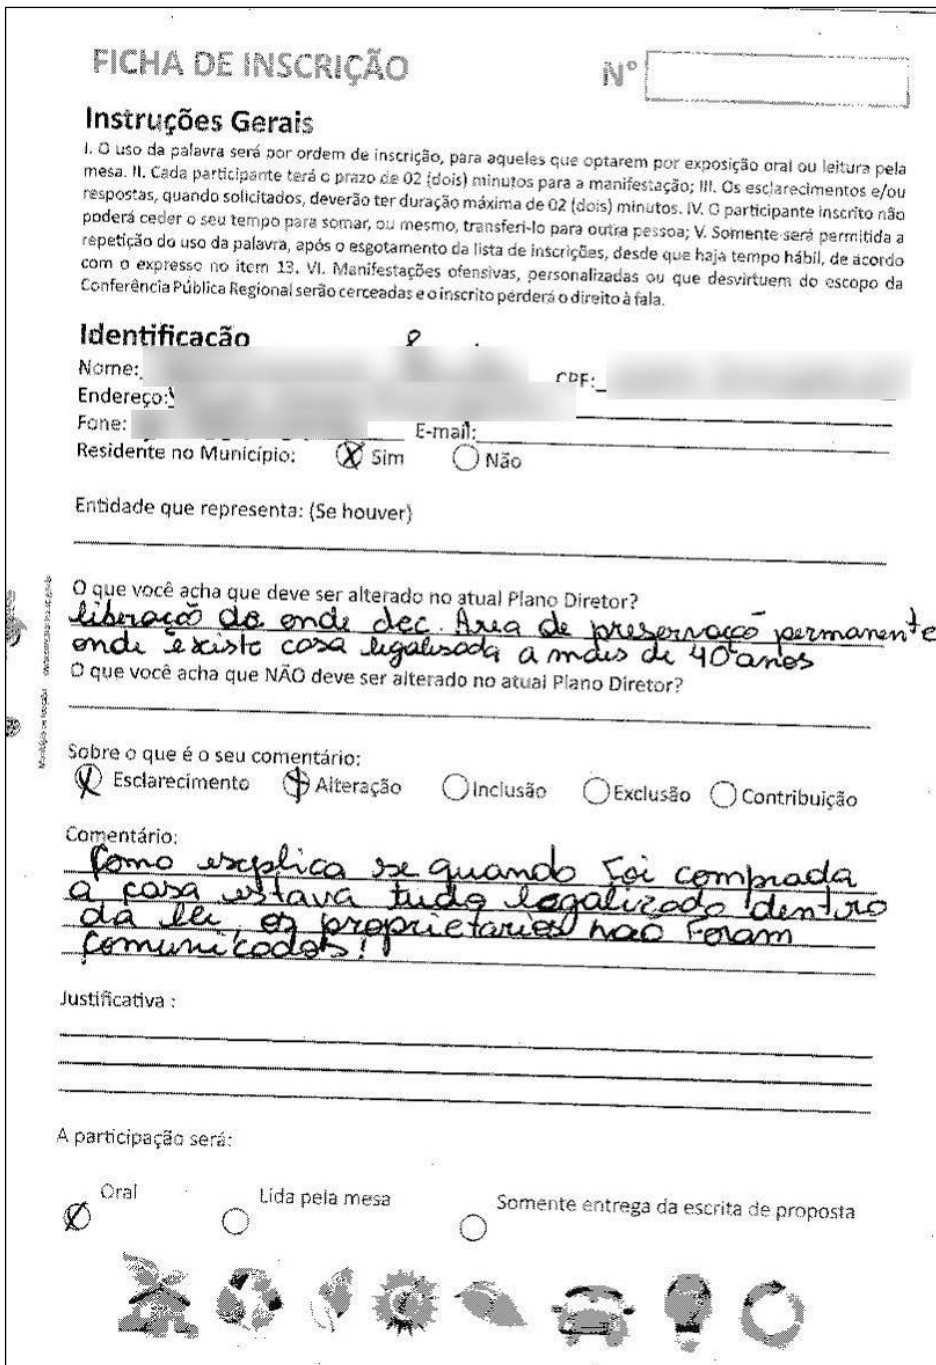 FICHA DE INSCRIÇÃO
Nº
Instruções Gerais
I. O uso da palavra será por ordem de inscrição, para aqueles que optarem por exposição oral ou leitura pela
mesa. II. Cada participante terá o prazo de 02 (dois) minutos para a manifestação; III. Os esclarecimentos e/ou
respostas, quando solicitados, deverão ter duração máxima de 02 (dois) minutos. IV. O participante inscrito não
poderá ceder o seu tempo para somar, ou mesmo, transferi-lo para outra pessoa; V. Somente será permitida a
repetição do uso da palavra, após o esgotamento da lista de inscrições, desde que haja tempo hábil, de acordo
com o expresso no item 13. VI. Manifestações ofensivas, personalizadas ou que desvirtuem do escopo da
Conferência Pública Regional serão cerceadas e o inscrito perderá o direito à fala.
Identificação
Nome: CPF:
Endereço:
Fone: E-mail:
Residente no Município: Sim Não
Entidade que representa: (Se houver)
O que você acha que deve ser alterado no atual Plano Diretor?
liberaçõ do onde dec. Área de preservaçõ permanente
onde existe casa legalisada a mais de 40 anos
O que você acha que NÃO deve ser alterado no atual Plano Diretor?
Sobre o que é o seu comentário:
Esclarecimento Alteração Inclusão Exclusão Contribuição
Comentário:
Como explica se quando foi comprada
a casa estava tudo legalizado dentro
da lei, os proprietarios não foram
comunicados!
Justificativa :
A participação será:
Oral Lida pela mesa Somente entrega da escrita de proposta